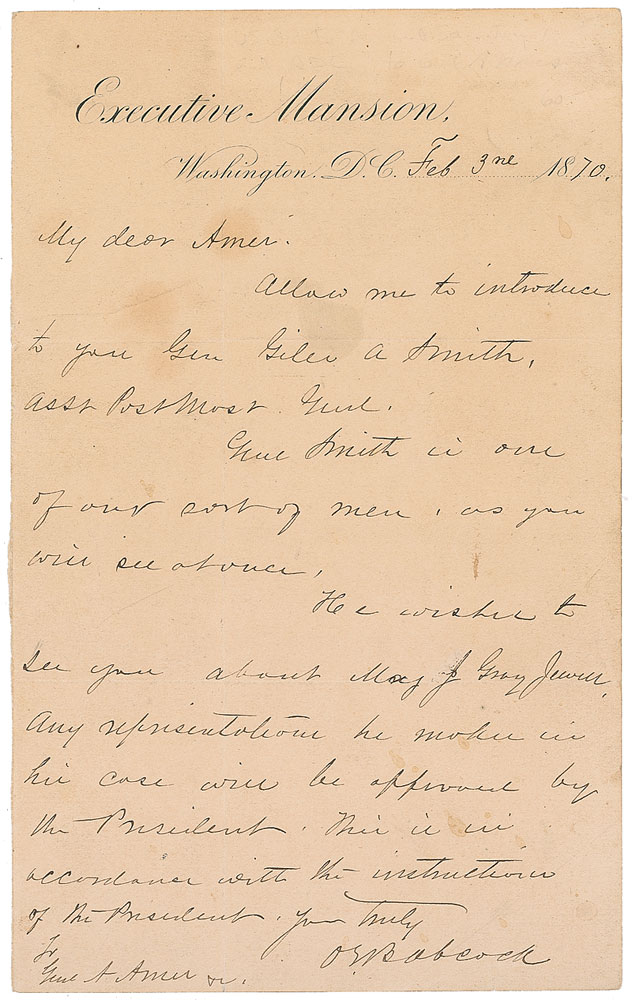 Executive Mansion,
Washington, D.C. Feb 3ne 1870.
My dear Amer.
Allow me to introduce
to you Gen Giles A Smith,
Asst PostMast. Genl.
Genl Smith is one
of our sort of men, as you
will see at once,
He wishes to
see you about Maj J Gray Jewell,
Any representations he makes in
his case will be approved by
the President. This is in
accordance with the instructions
of the President. Your Truly
O E Babcock
To
Genl A Amer &c.